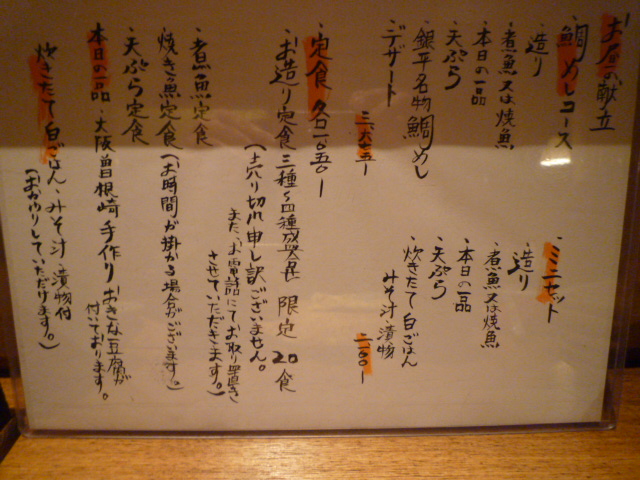 お昼の献立
鯛めしコース
・造り
・煮魚又は焼魚
・本日の一品
・天ぷら
・銀平名物鯛めし
・デザート
三、六七五ー
・ミニセット
・造り
・煮魚又は焼魚
・本日の一品
・天ぷら
・炊きたて白ごはん
みそ汁漬物
二一〇〇ー
・定食各一、〇五〇ー
・お造り定食三種〜四種盛合せ 限定20食
(売り切れ申し訳ございません。
また、お電話にてお取り置き
させていただきます。)
・煮魚定食
・焼き魚定食(お時間が掛かる場合がございます。)
・天ぷら定食
本日の一品・大阪曽根崎手作りおきな豆腐が
付いております。
炊きたて白ごはん・みそ汁・漬物付
(おかわりしていただけます。)